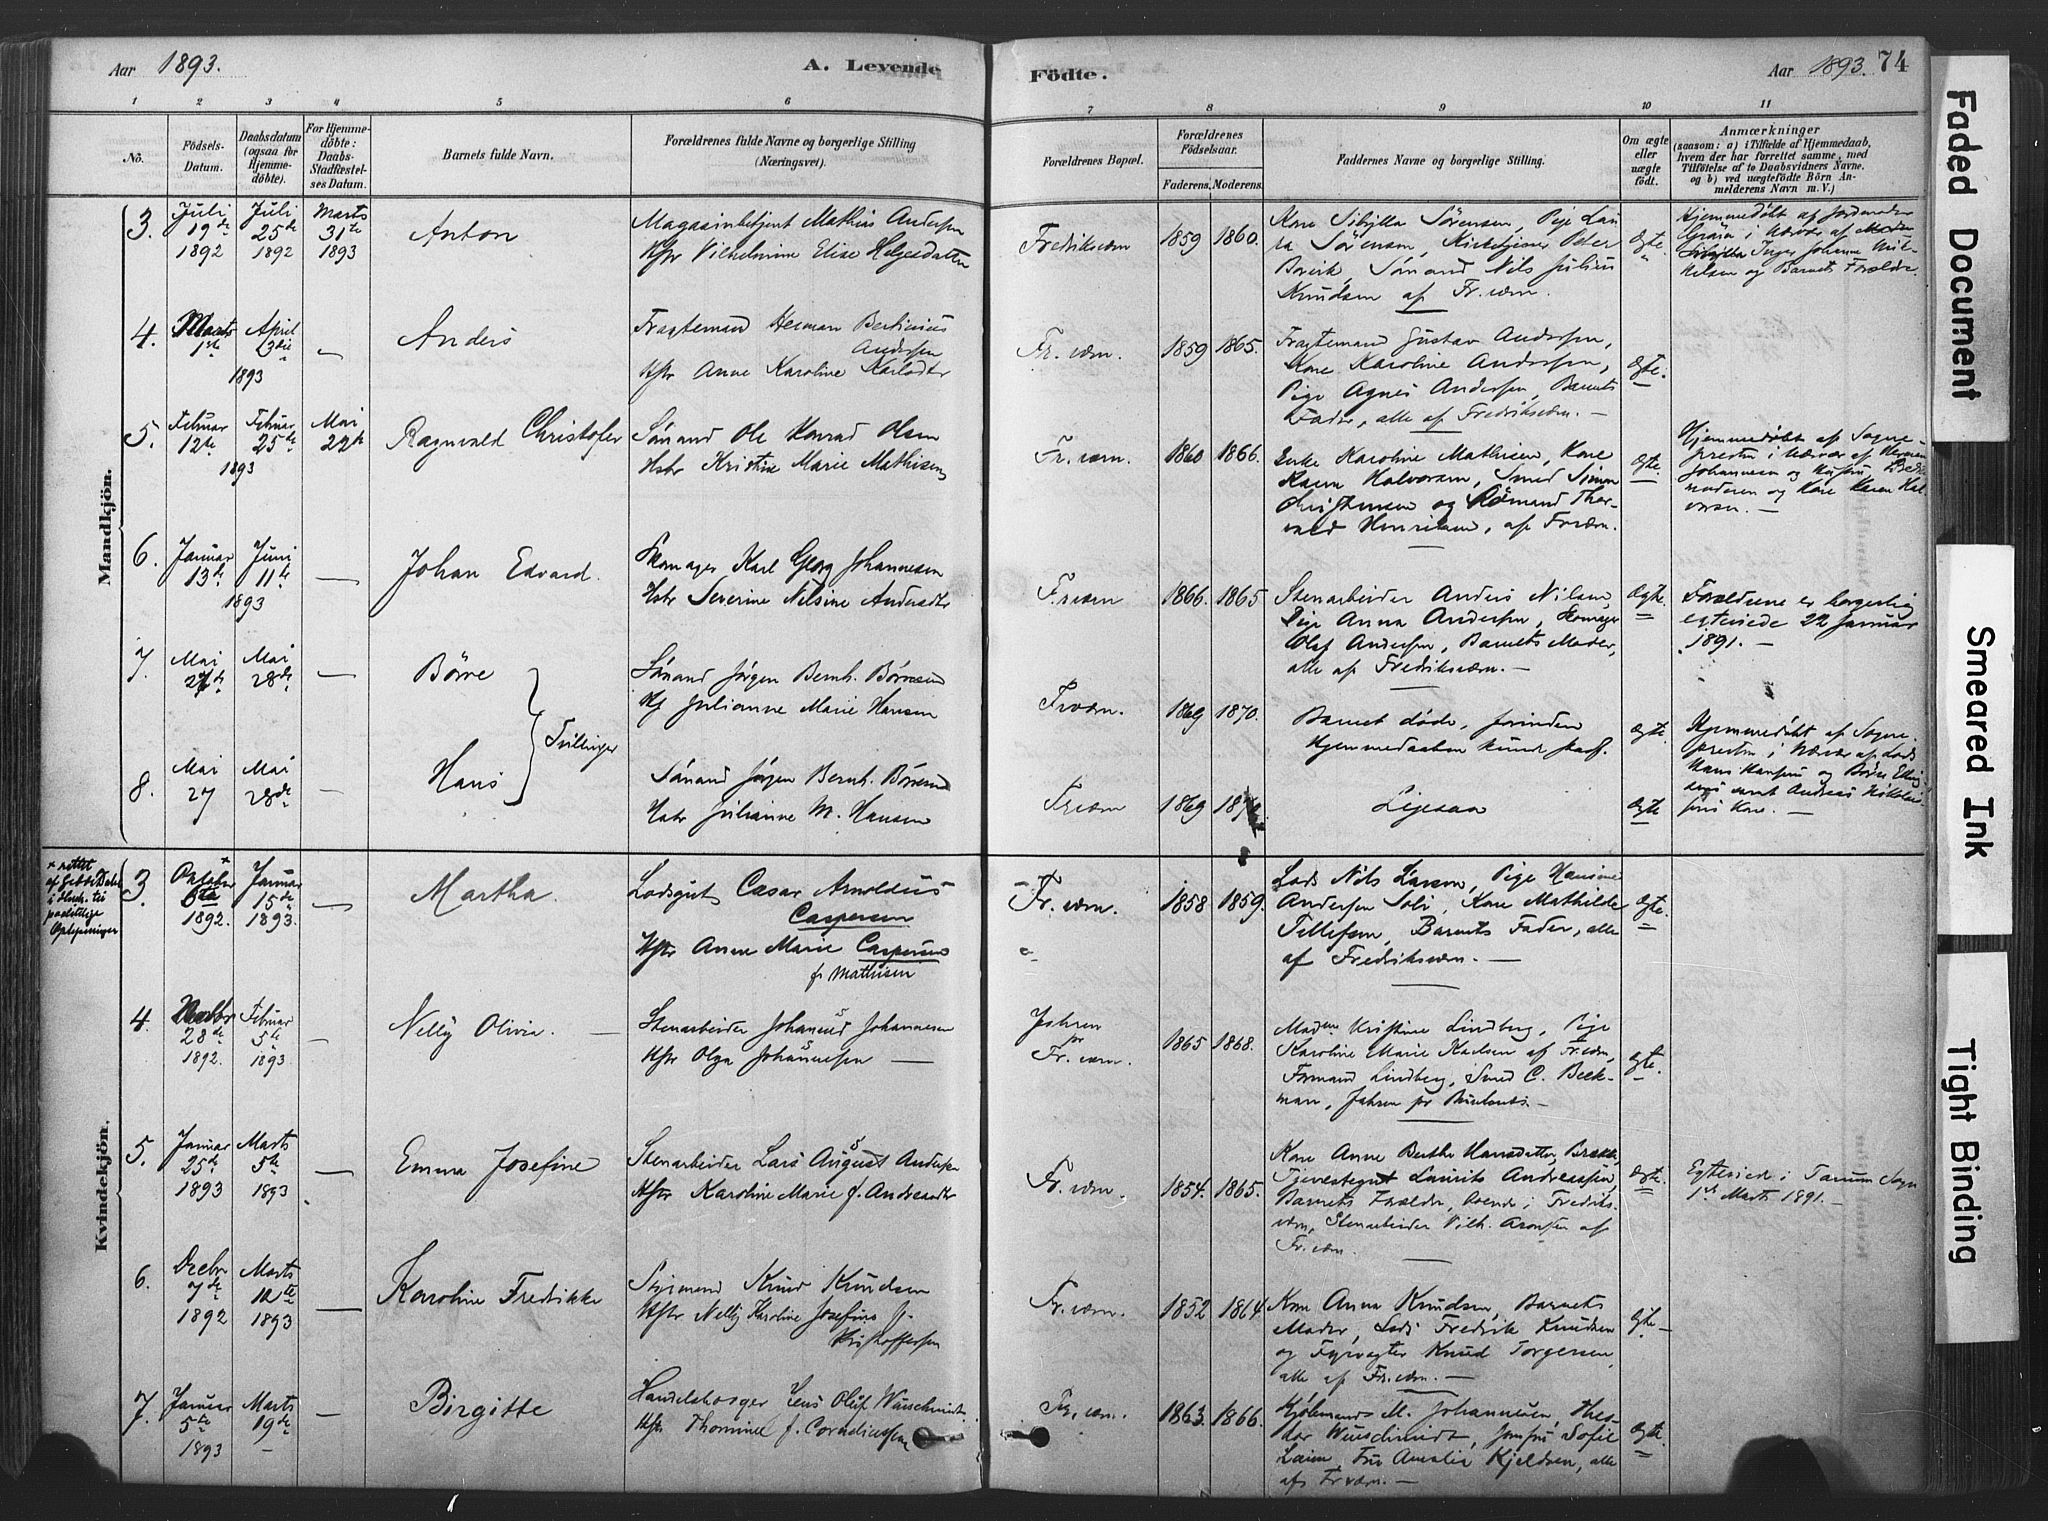 Aar 1893.
A. Levende
Födte.
Aar 1893. 74
1 2 3 4 5 6
7 8 9 10 11
No.
Födsels-
Datum.
Daabsdatum
(ogsaa for
Hjemme-
döbte).
For Hjemme-
döbte:
Daabs-
Stadfæstel-
ses Datum.
Barnets fulde Navn.
Forældrenes fulde Navne og borgerlige Stilling
(Næringsvei).
Forældrenes Bopæl.
Forældrenes
Födselsaar.
Faderens. Moderens.
Faddernes Navne og borgerlige Stilling.
Om ægte
eller
uægte
födt.
Anmærkninger
(saasom: a) i Tilfælde af Hjemmedaab,
hvem der har forrettet samme, med
Tilföielse af to Daabsvidners Navne.
og b) ved uægtefödte Börn An-
melderens Navn m. V.)
Mandkjön.
3.
Juli
19de
1892
Juli
25de
1892
Marts
31te
1893
Anton
Magasinbetjent Mathias Andersen
Hstr Vilhelmine Elise Helgesdatter
Fredriksværn
1859 1860.
Kone Sibylla Sörensen, Pige Lau-
ra Sörensen, Kirketjener Peter
Borvik, Sömand Nils Julius
Knudsen af Fr.værn.
Ægte
Hjemmedøbt af Jordemoder
og Barnets Forældre.
4.
Marts
1ste
April
3die
1893
Anders
Fragtemand Herman Bertinius
Andersen
Hstr Anne Karoline Karlsdtr
Fr. værn.
1859 1865.
Fragtemand Gustav Andersen,
Kone Karoline Andersen,
Pige Agnes Andersen, Barnets
Fader, alle af Fredriksværn. —
Ægte.
5.
Februar
12te
Februar
25de
1893
Mai
22de
Ragnvald Christofer
Sömand Ole Konrad Olsen
Hstr Kristine Marie Mathisen
Fr. værn.
1860 1866.
Enke Karoline Mathisen, Kone
Karen Halvorsen, Smed Simon
Christensen og Sömand Thor-
vald Henriksen, af Fr.værn.
Ægte.
Hjemmedøbt af Sogne-
presten i Nærvær af Herman
Johannesen og Hustru
moderen og Kone Karen Hal-
vorsen. —
6.
Januar
13de
Juni
11te
1893
—
Johan Edvard.
Skomager Karl Georg Johannesen
Hstr Severine Nilsine Andersdtr
Fr.værn
1866. 1865
Stenarbeider Anders Nilsen,
Pige Anna Andersen, Skomager
Olaf Andersen, Barnets Moder,
alle af Fredriksværn. —
Ægte.
Forældrene er borgerlig
egteviede 22 Januar
1891. —
7.
Mai
27de
Mai
28de
—
Börre
Sömand Jörgen Bernh. Börresen
Hj Julianne Marie Hansen
Fr.værn.
1869 1870.
Barnet döde, forinden
Hjemmedaaben kunde stadf.
Ægte.
Hjemmedøbt af Sogne-
presten i Nærvær af Lods
Hans Hansens og Börre
samt Andreas
Kone. —
Tvillinger
8.
Mai
27
Mai
28de
—
Hans
Sömand Jörgen Bernh. Börresen
Hstr Julianne M. Hansen
Fr.værn
1869
Ligesaa
Ægte
Kvindekjön.
x rettet
3.
Oktober
6te
1892.
Januar
15de
1893.
—
Martha.
Lodsgut Cæsar Arnoldus
Caspersen
Hstr Anne Marie Caspersen
f. Mathisen
Fr. værn.
1858 1859.
Lods Nils Larsen, Pige Hansine
Andersen Kone Mathilde
Tellefsen, Barnets Fader, alle
af Fredriksværn. —
Ægte.
4.
28de
1892.
Februar
5te
1893.
—
Nelly Olivia. —
Stenarbeider Johannes Johannesen
Hstr Olga Johannesen —
Jahren
pr
Fr. værn.
1865 1868.
Madm Kristine Lindberg, Pige
Karoline Marie Karlsen af Fr.værn,
Formand Lindberg, Smed C. Beck-
man, Jahren pr
Ægte.
5.
Januar
25de
1893
Marts
5te
1893
—
Emma Josefine
Stenarbeider Lars August Andersen
Hstr Karoline Marie f. Andreasdtr
Fr. værn.
1854. 1865.
Kone Anne Berthe Hansdatter,
Tjenestegut Laurits Andreassen,
Barnets Forældre, boende i Fredriks-
værn, Stenarbeider Vilh. Aronsen af
Fr.værn.
Ægte.
Egteviede i Tanum Sogn
1ste Marts 1891. —
6.
Decbr
7de
1892
Marts
12te
1893
—
Karoline Fredrikke
Knud Knudsen
Hstr Nelly Karoline Josefine f.
Kristoffersen
Fr. værn.
1852 1864.
Kone Anna Knudsen, Barnets
Moder, Lods Fredrik Knudsen
og Fyrvogter Knud Torgersen,
alle af Fr.værn. —
Ægte —
7.
Januar
5te
1893
Marts
19de
—
—
Birgitte
Handelsborger Jens Oluf Wunschmidt
Hstr Thomine f. Corneliussen
Fr. værn.
1863. 1866.
Kjöbmand M. Johannesen, Theo-
dor Wunschmidt, Jomfru Sofie
Fru Amalie Kjeldsen, alle
af Fr.værn. —
Ægte.
Faded Document
Smeared Ink
Tight Binding